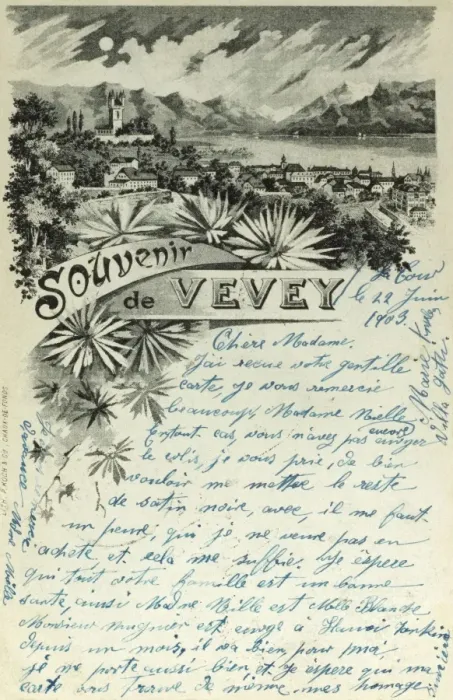 Souvenir
de VEVEY
la Tour
le 22 Juin
1903.
Chère Madame.
J'ai reçue votre gentille
carte, je vous remercie
beaucoup, Madame Nielle
encore
Entout cas, vous n'avez pas envoyer
le colis, je vous prie, de bien
vouloir me mettre le reste
de satin noire, avec, il me faut
un peut, qui je ne veux pas en
acheté et cela me suffire. J'espère
qui tout votre famille est un bonne
santé, ainsi Madme Nielle est Melle Blanche
Monsieur est envoyé à Hanoi Tonkin
depuis un mois, il va bien, pour ma,
je me porte aussi bien et j'espère qui ma
carte vous trouve de même, mes homage
Marie
Villa
LITH. F. KOCH & CO. CHAUX-DE-FONDS